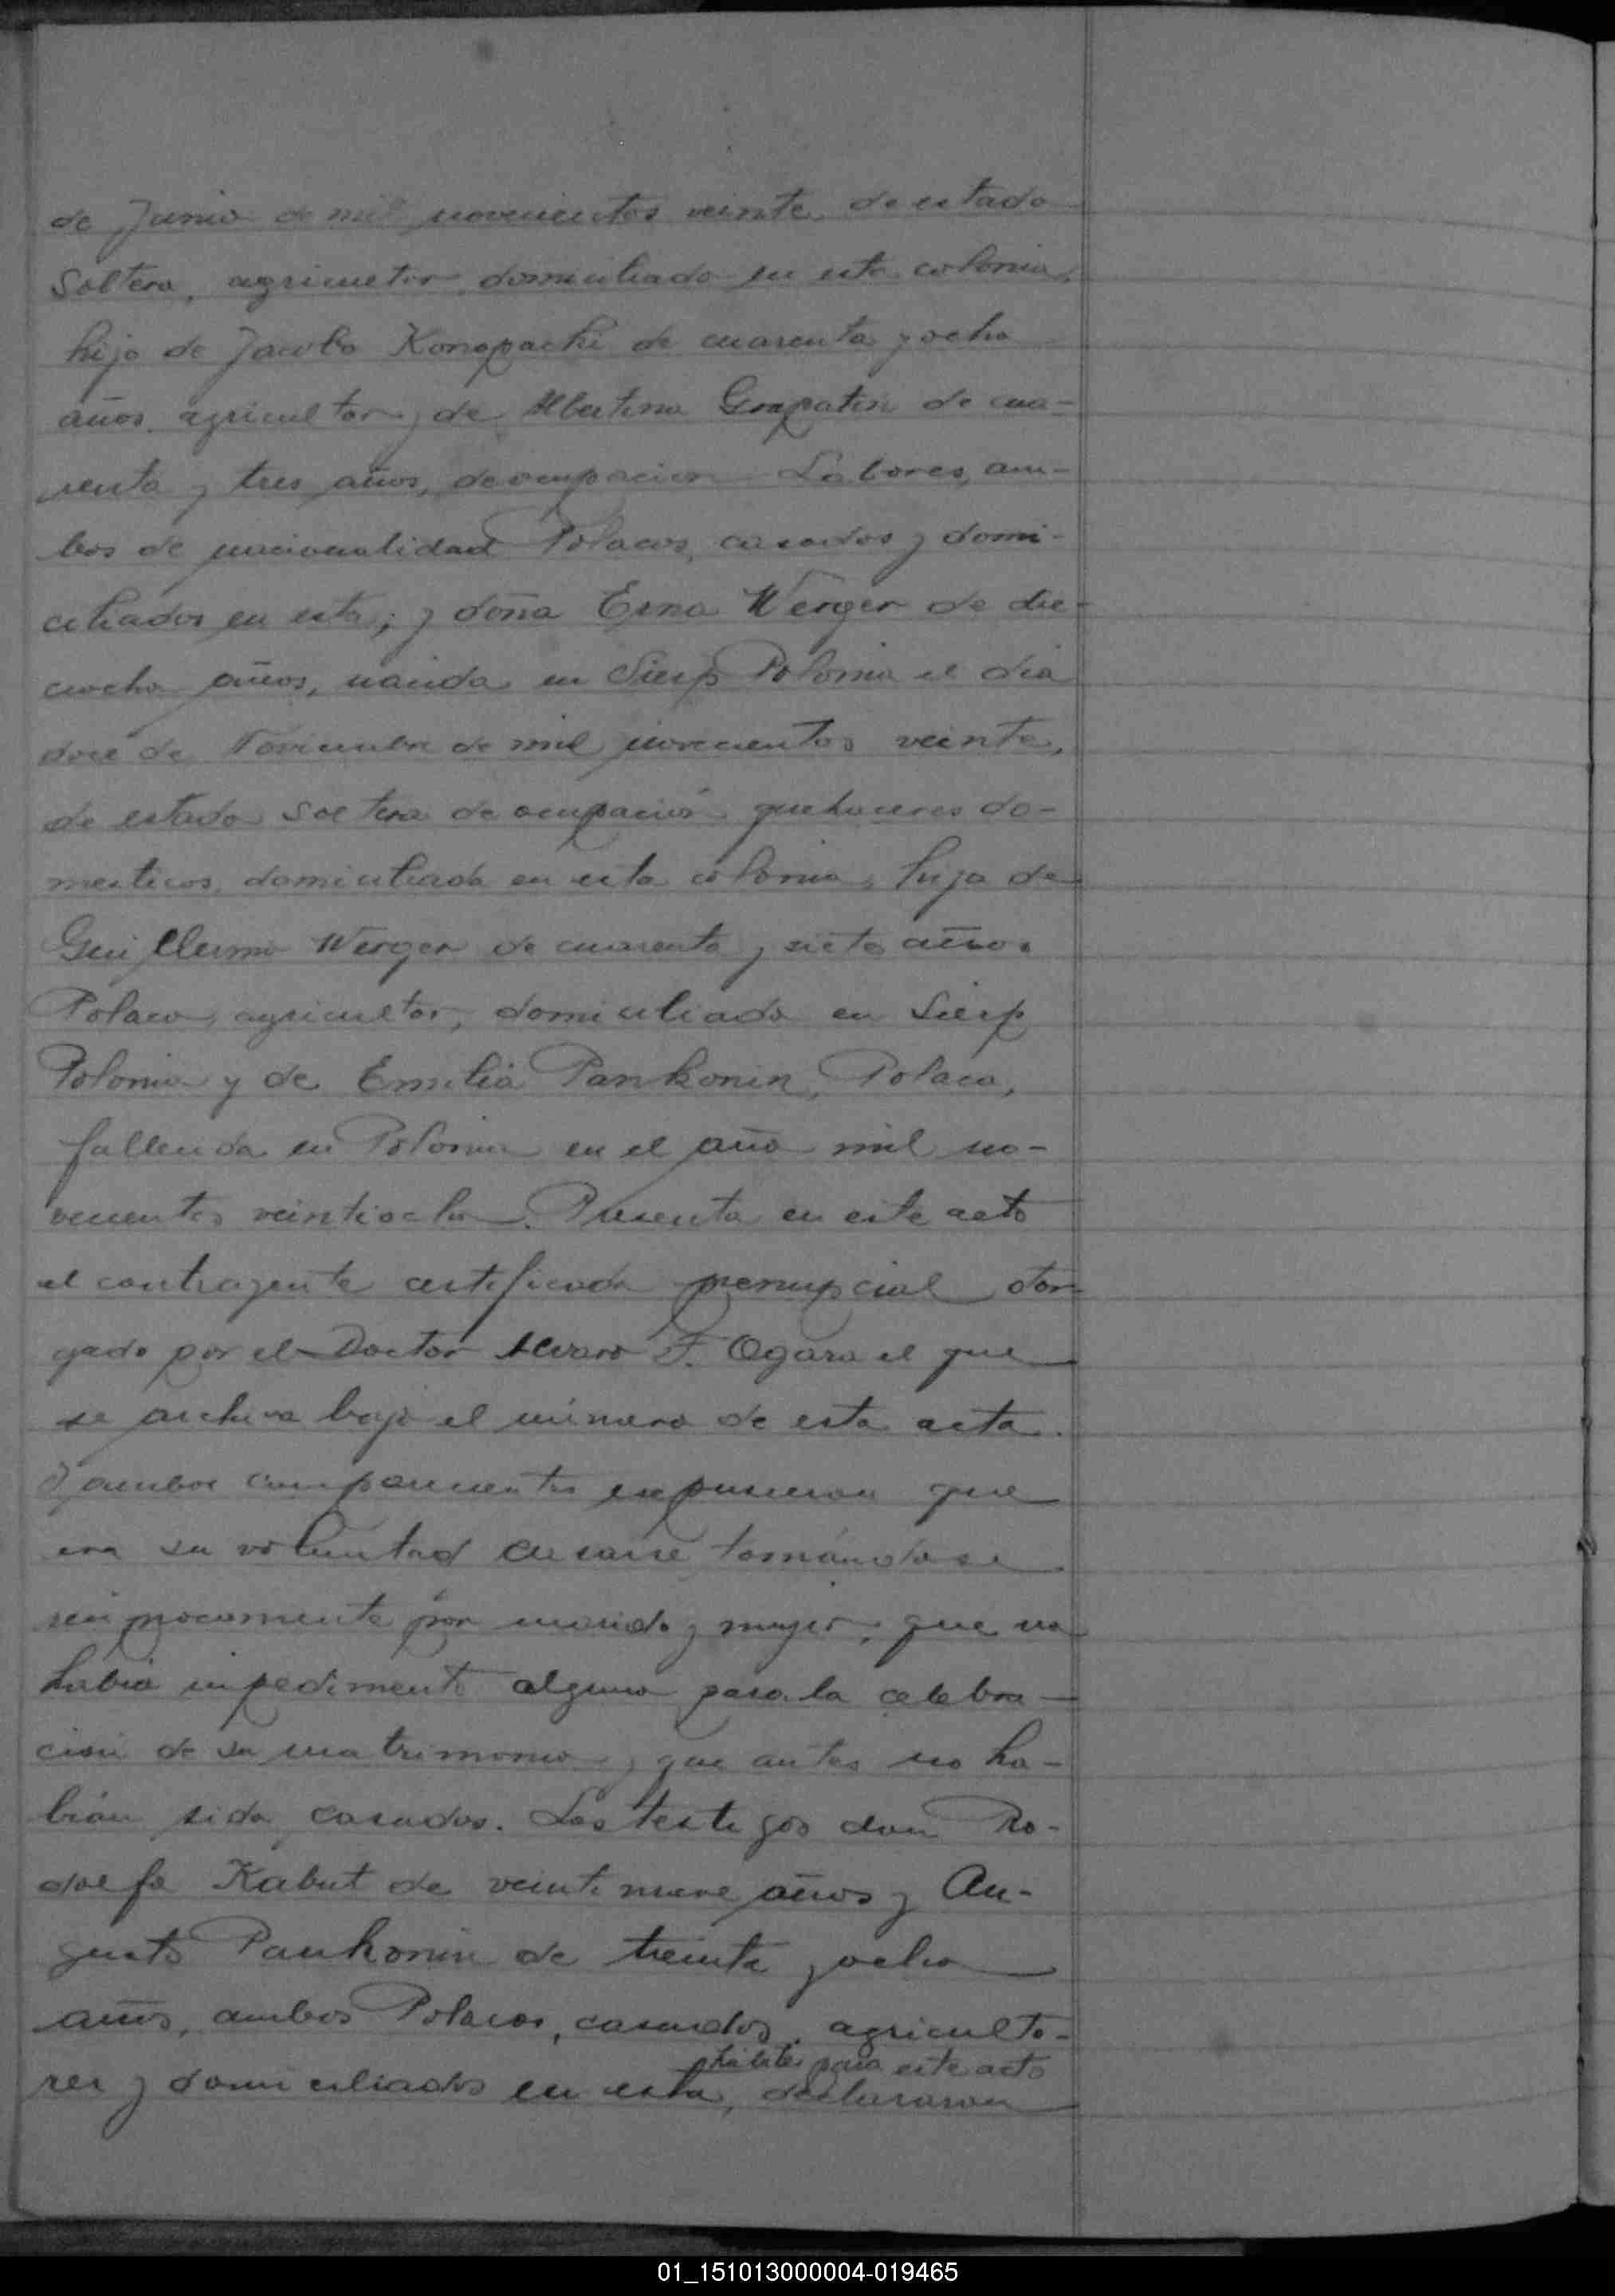 de Junio de mil novecientos veinte de estado
Soltero, agricultor domiciliado en esta colonia,
hijo de Jacobo Konopacki de cuarenta y ocho
años agricultor y de Albertina Grapatin de cua-
renta y tres años, de ocupacion Labores, am-
bos de nacionalidad Polacos, casados y domi-
ciliados en esta; y doña Erna Werger de die-
ciocho años, nacida en Sierp Polonia el dia
doce de Noviembre de mil novecientos veinte,
de estado soltera de ocupación quehaceres do-
mesticos, domiciliada en esta colonia, hija de
Guillermo Werger de cuarenta y siete años
Polaco, agricultor, domiciliado en Sierp
Polonia y de Emilia Pankonin, Polaca,
fallecida en Polonia en el año mil no-
vecientos veintiocho. Presenta en este acto
el contrayente certificado prenupcial otor-
gado por el Doctor Alvaro F. Ogara el que
se archiva bajo el número de esta acta.
Y ambos comparecientes expusieron que
era su voluntad casarse tomándose
reciprocamente por marido y mujer, que no
habia impedimento alguno para la celebra-
ción de su matrimonio y que antes no ha-
bían sido casados. Los testigos don Ro-
dolfo Kabut de veintinueve años y Au-
gusto Pankonin de treinta y ocho
años, ambos Polacos, casados, agriculto-
hábiles para este acto
res y domiciliados en esta, declararon
01_151013000004-019465